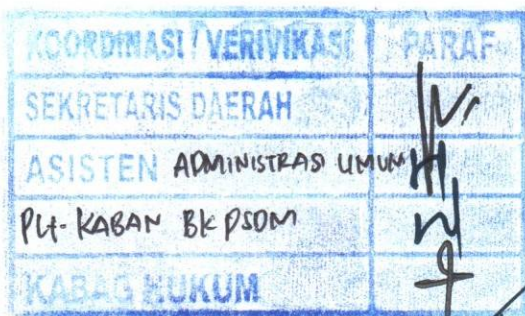 KOORDINASI / VERIVIKASI PARAF
SEKRETARIS DAERAH
ASISTEN ADMINISTRASI UMUM
Plt. KABAN BKPSDM
KABAG HUKUM